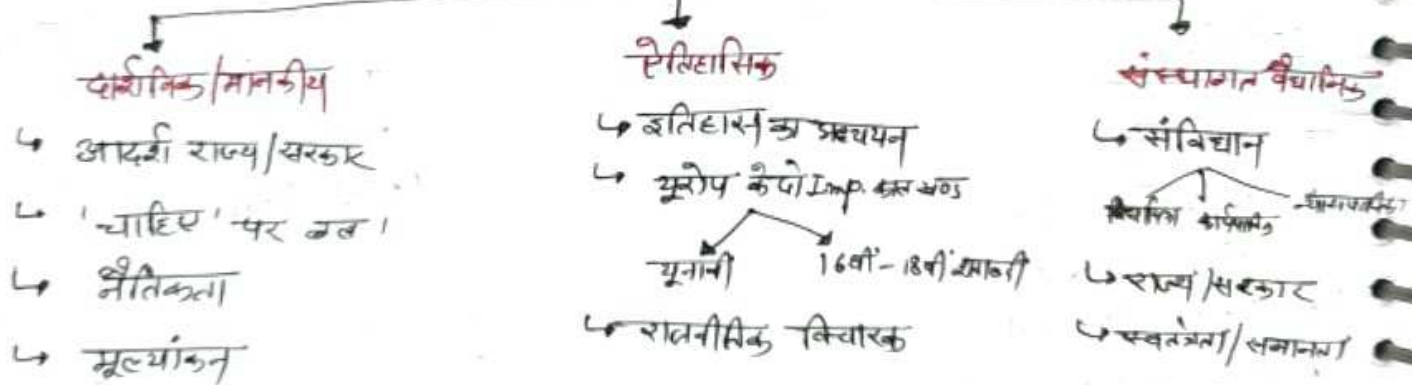 दार्शनिक/मानकीय
↳ आदर्श राज्य/सरकार
↳ 'चाहिए' पर बल।
↳ नैतिकता
↳ मूल्यांकन
ऐतिहासिक
↳ इतिहास का अध्ययन
↳ यूरोप के दो Imp. काल खण्ड
यूनानी 16वीं-18वीं शताब्दी
↳ राजनीतिक विचारक
संस्थागत वैधानिक
↳ संविधान
विधायिका कार्यपालिका न्यायपालिका
↳ राज्य/सरकार
↳ स्वतंत्रता/समानता